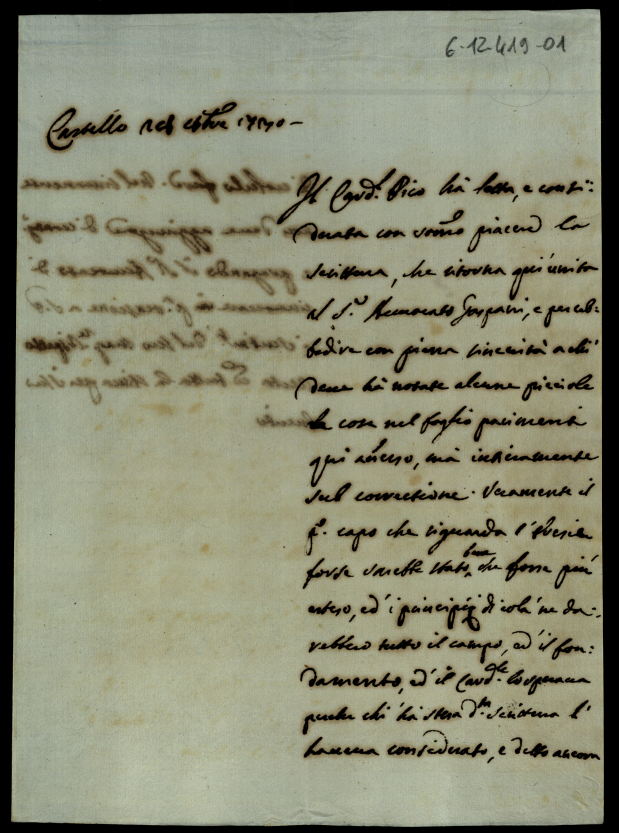 6-12-419-01
Castello 28 8bre 1710 -
Il Card.l Pico hà letta, e consi:
derata con som.o piacere la
scrittura, che ritorna qui unita
al S.r Avvocato Gaspari, e per ub:
bedire con piena sincerità a chi
deve hà notate alcune picciole
cose nel foglio parimenti
qui annesso, mà intieramente
sub correctione. Veramente il
p.o capo che riguarda l'
forse sarebbe stato bene che fosse più
esteso, ed' i principij di colà ne da:
rebbero tutto il campo, ed' il fon:
damento, ed' il Card.le lo sperava
perche chi hà stesa d.ta scrittura l'
haveva considerato, e detto ancora